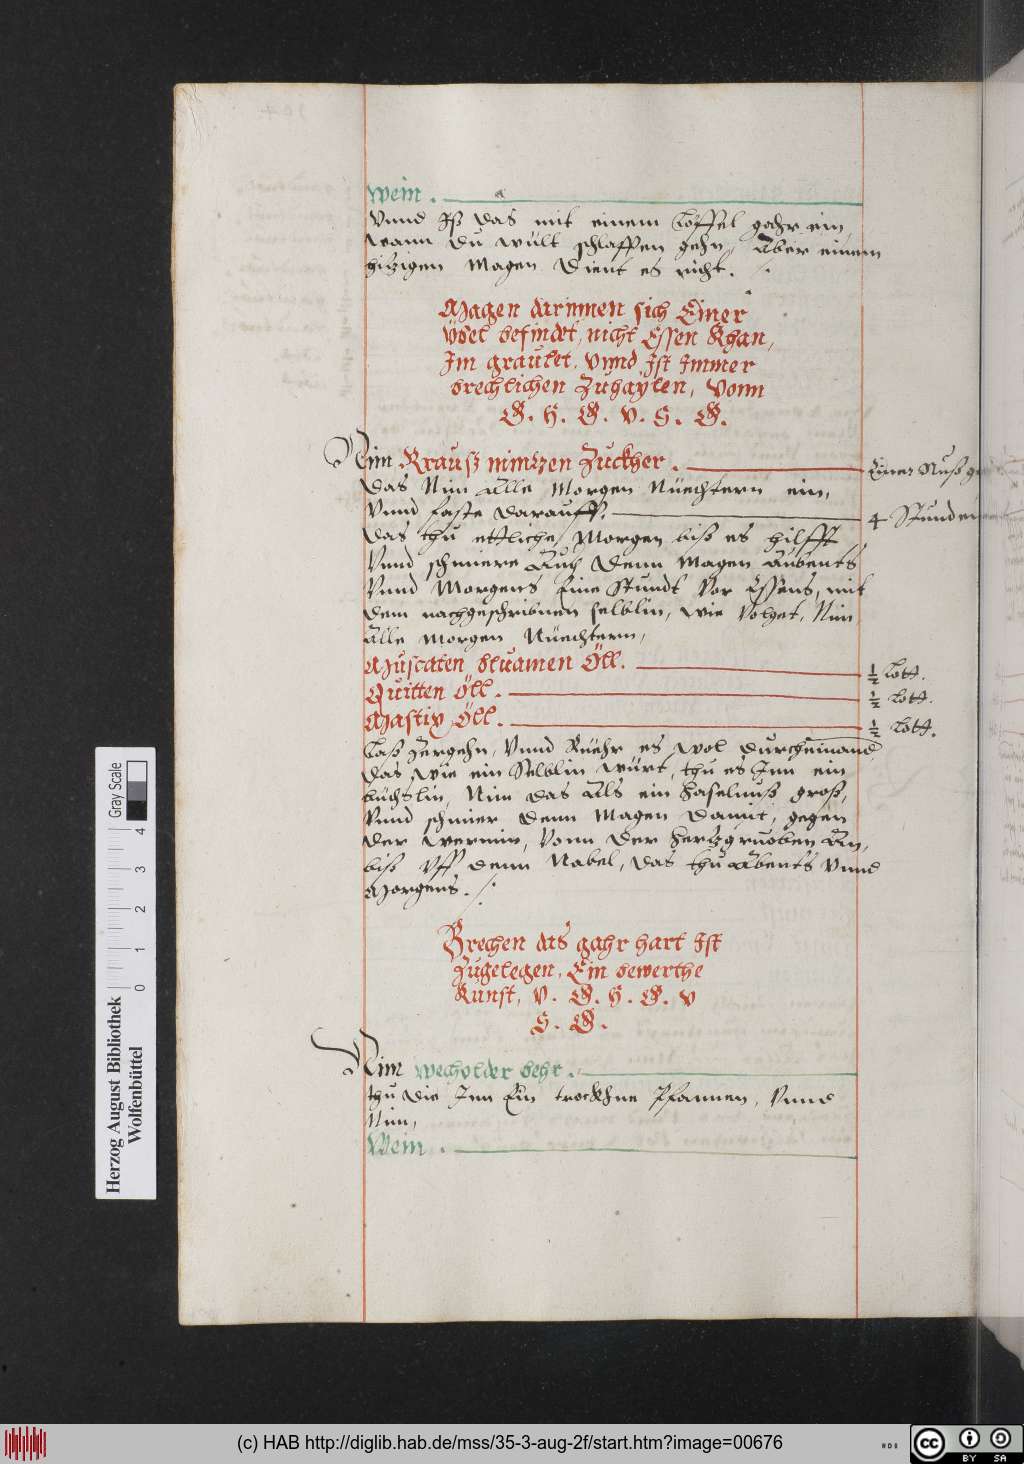 Wein.
Vnnd Iß das mit einem Löffel gahr ein,
wann du wült schlaffen gehn, Aber einem
hitzigen Magen dient es nicht.
Magen darinnen sich Einer
vbel befindet, nicht Essen Khan,
Im graulet, vnnd Ist Immer
brechlichen Zuhaylen, vonn
G. H. G. V. S. G.
Nim Krausz mintzen Zuckher. Einer Nuß
das Nim Alle Morgen Nüechtern ein,
Vnnd faste darauff. 4 Stunden
das thu ettliche Morgen biß es hilfft
Vnnd schmiere Auch denn Magen Aubents
Vnnd Morgens Eine Stundt Vor Essens, mit
dem nachgeschribnen selblin, wie Volget, Nim
Alle Morgen Nüechtern,
Muscaten bluamen Öll. ½ Lott.
Quitten Öll. ½ Lott.
Mastix Öll. ½ Lott.
Laß zergehn, Vnnd Rüehr es wol durcheinand
das wie ein Selblin würt, thu es Inn ein
büchslin, Nim das Als ein haselnuß groß,
Vnnd schmier denn Magen damit, gegen
der wermin, Vonn der hertzgruoben An,
biß Vff denn Nabel, das thu Abents Vnnd
Morgens.
Brechen das gahr hart Ist
Zugelegen, Ein bewerthe
Kunst, V. G. H. G. V
S. G.
Nim Wecholder behr.
thu die Inn Ein trockhne Pfannen, Vnnd
Nim,
Wein.
Herzog August Bibliothek
Wolfenbüttel
0 1 2 3 4
Gray Scale
(c) HAB http://diglib.hab.de/mss/35-3-aug-2f/start.htm?image=00676
cc BY SA